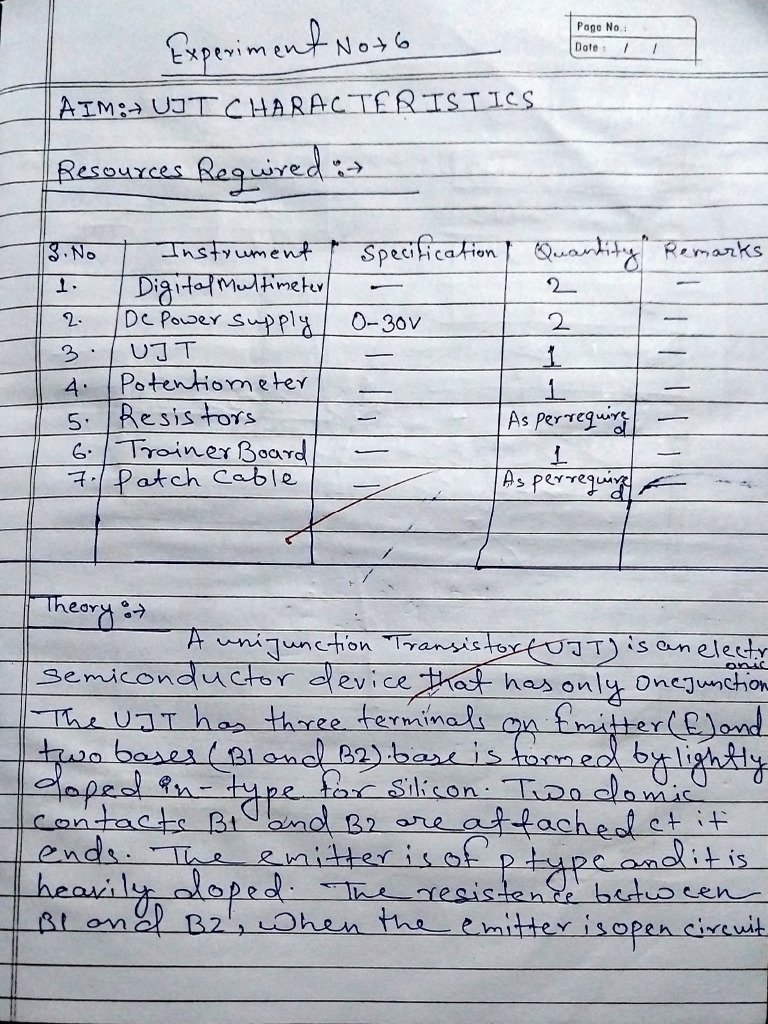 Page No.:
Date : / /
Experiment No→6
AIM:→ UJT CHARACTERISTICS
Resources Required :→
S.No Instrument Specification Quantity Remarks
1. Digital Multimeter — 2 —
2. DC Power Supply 0-30V 2 —
3. UJT — 1 —
4. Potentiometer — 1 —
5. Resistors — As per required —
6. Trainer Board — 1 —
7. Patch Cable — As per required —
Theory :→
A unijunction Transistor (UJT) is an electronic
semiconductor device that has only one junction
The UJT has three terminals an Emitter (E) and
two bases (B1 and B2). base is formed by lightly
doped n-type for Silicon. Two domic
contacts B1 and B2 are attached et it
ends. The emitter is of p type and it is
heavily doped. The resistence between
B1 and B2, when the emitter is open circuit